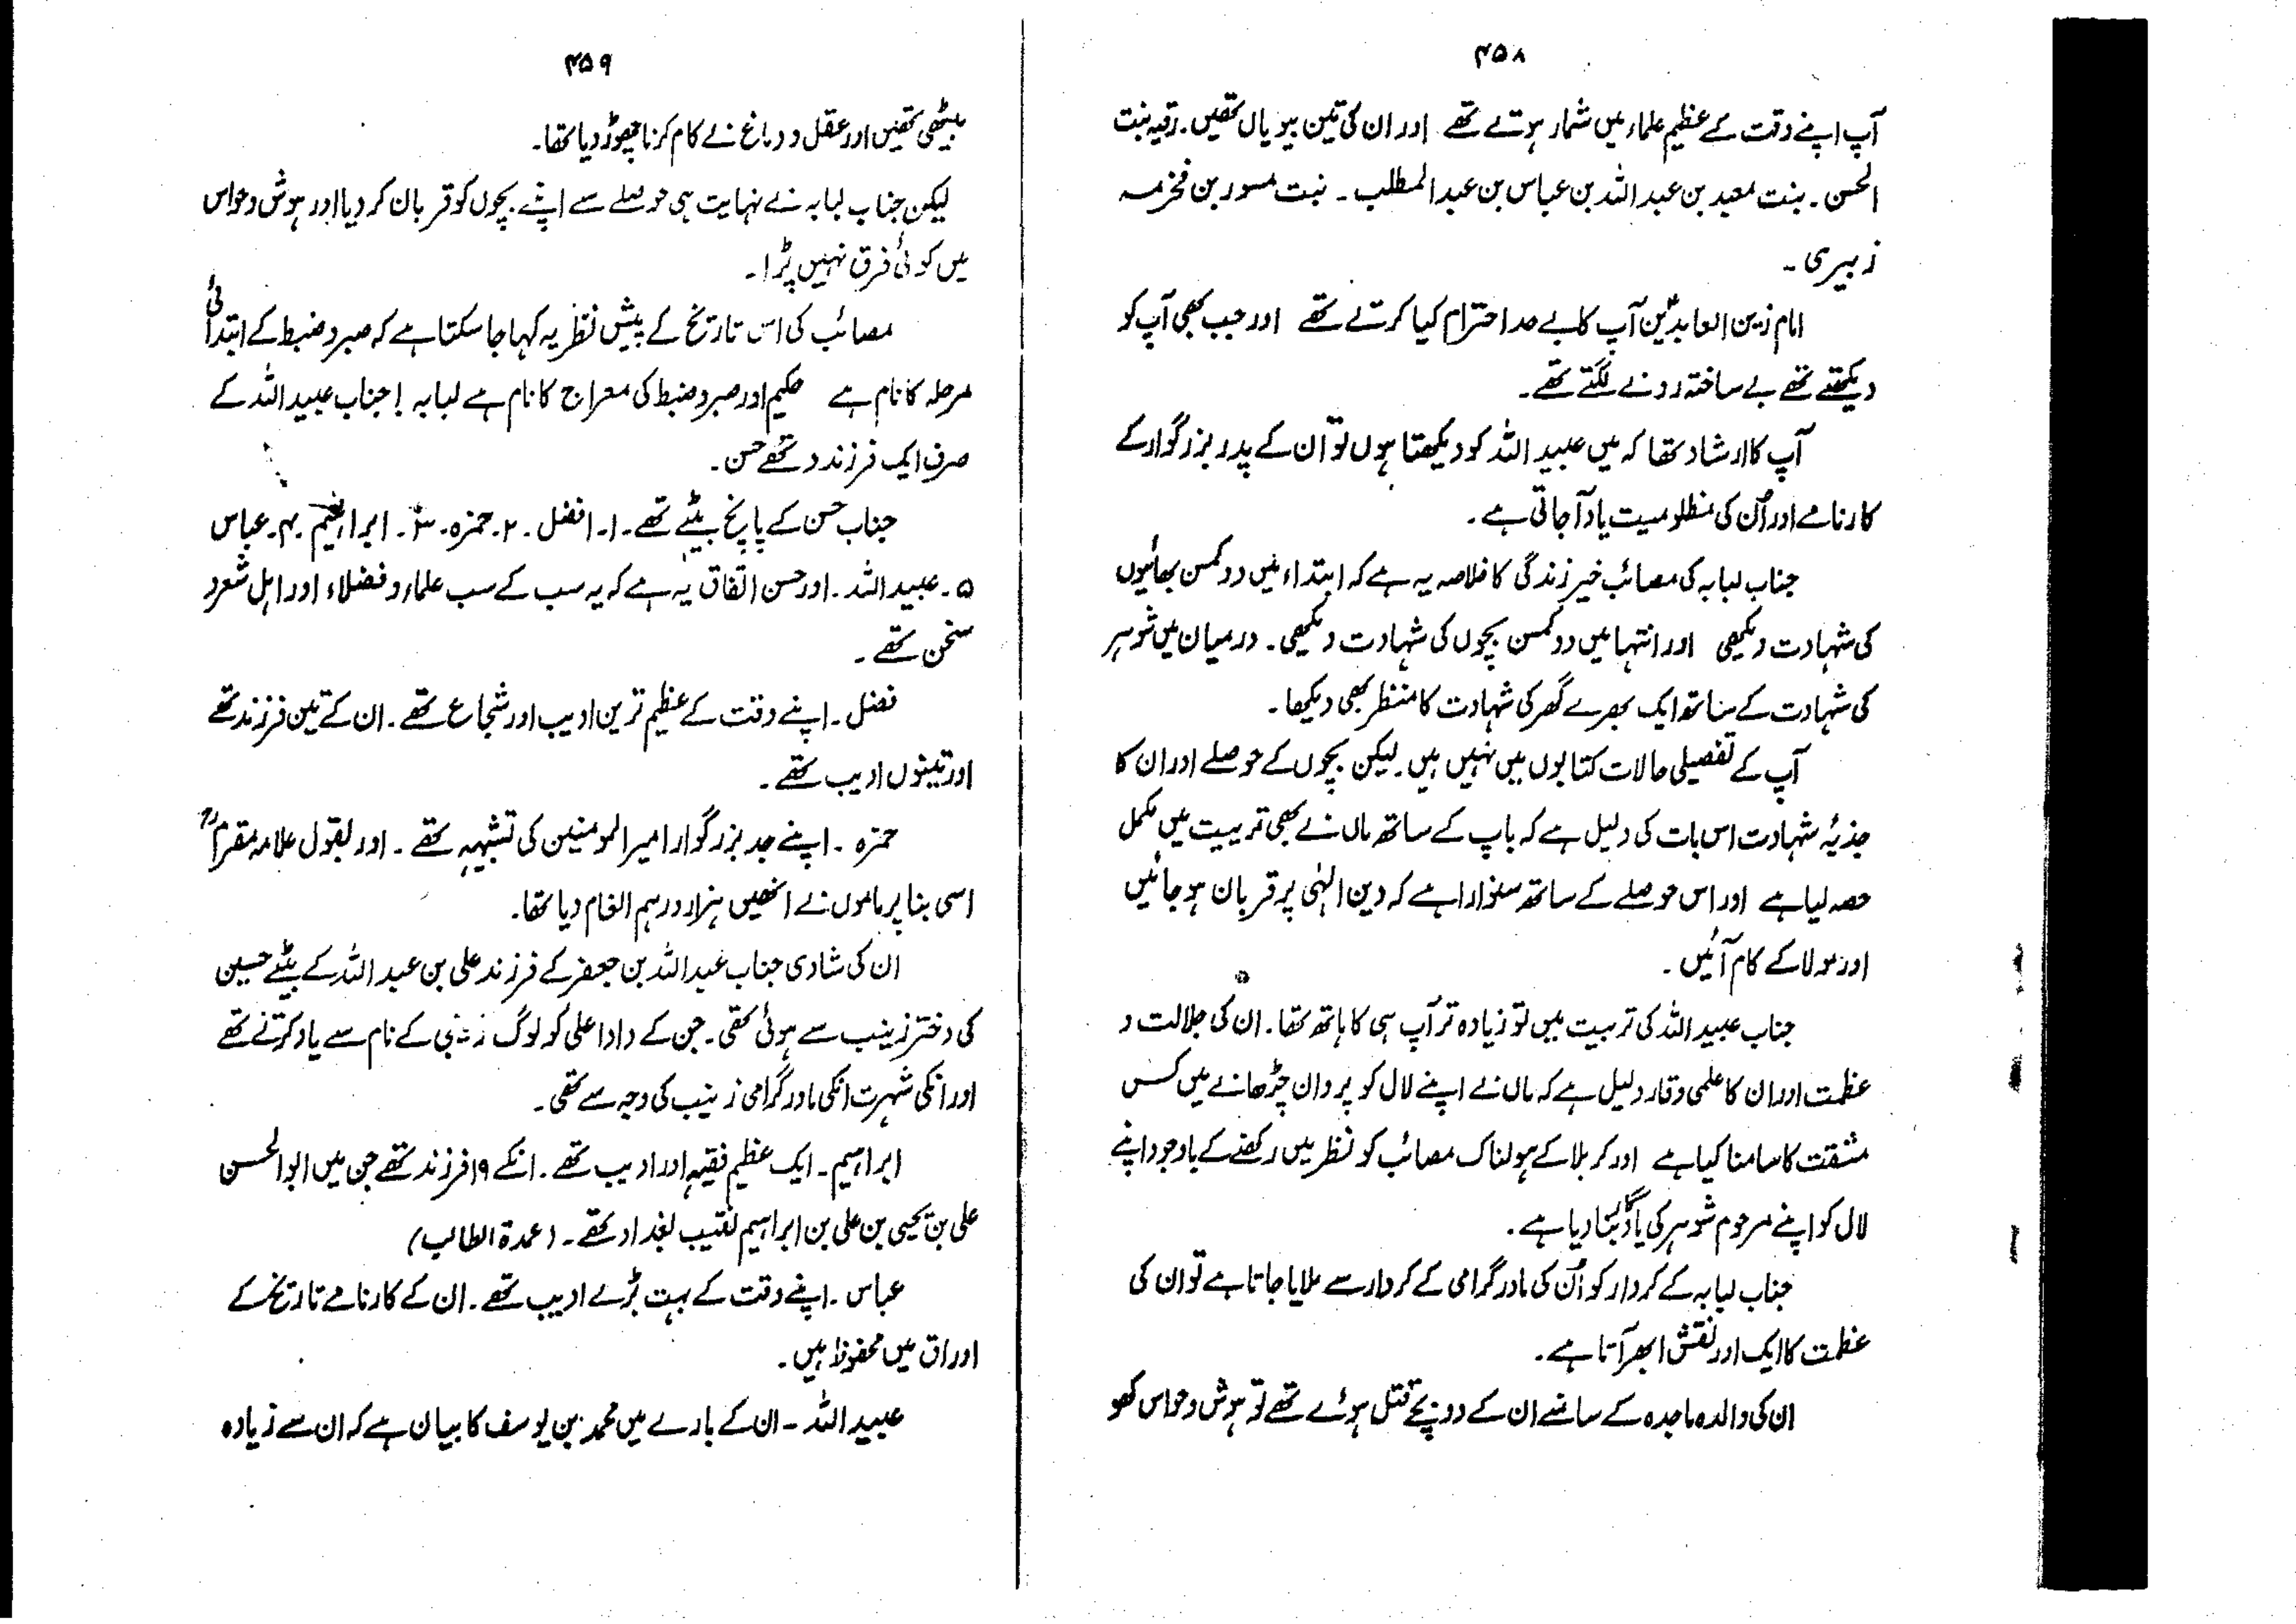 ۴۵۸
آپ اپنے وقت کے عظیم علماء میں شمار ہوتے تھے اور ان کی تین بیویاں تھیں۔ رقیہ بنت
الحسن۔ بنت معبد بن عبد اللہ بن عباس بن عبد المطلب۔ بنت مسور بن مخزمہ
زبیری۔
امام زین العابدینؑ آپ کا بے حد احترام کیا کرتے تھے اور جب بھی آپ کو
دیکھتے تھے بے ساختہ رونے لگتے تھے۔
آپ کا ارشاد تھا کہ میں عبید اللہ کو دیکھتا ہوں تو ان کے پدر بزرگوار کے
کارنامے اور اُن کی مظلومیت یاد آجاتی ہے۔
جناب لبابہ کی مصائب خیز زندگی کا خلاصہ یہ ہے کہ ابتداء میں دو کمسن بھائیوں
کی شہادت دیکھی اور انتہا میں دو کمسن بچوں کی شہادت دیکھی۔ درمیان میں شوہر
کی شہادت کے ساتھ ایک بھرے گھر کی شہادت کا منظر بھی دیکھا۔
آپ کے تفصیلی حالات کتابوں میں نہیں ہیں۔ لیکن بچوں کے حوصلے اور ان کا
جذبۂ شہادت اس بات کی دلیل ہے کہ باپ کے ساتھ ماں نے بھی تربیت میں مکمل
حصہ لیا ہے اور اس حوصلے کے ساتھ سنوارا ہے کہ دین الہٰی پر قربان ہو جائیں
اور مولا کے کام آئیں۔
جناب عبید اللہ کی تربیت میں تو زیادہ تر آپ ہی کا ہاتھ تھا۔ ان کی جلالت و
عظمت اور ان کا علمی وقار دلیل ہے کہ ماں نے اپنے لال کو پروان چڑھانے میں کس
مشقت کا سامنا کیا ہے اور کربلا کے ہولناک مصائب کو نظر میں رکھنے کے باوجود اپنے
لال کو اپنے مرحوم شوہر کی یادگار بنا دیا ہے۔
جناب لبابہ کے کردار کو اُن کی مادر گرامی کے کردار سے ملایا جاتا ہے تو ان کی
عظمت کا ایک اور نقش ابھر آتا ہے۔
ان کی والدہ ماجدہ کے سامنے ان کے دو بچے قتل ہوئے تھے تو ہوش و حواس کھو
۴۵۹
بیٹھی تھیں اور عقل و دماغ نے کام کرنا چھوڑ دیا تھا۔
لیکن جناب لبابہ نے نہایت ہی حوصلے سے اپنے بچوں کو قربان کر دیا اور ہوش و حواس
میں کوئی فرق نہیں پڑا۔
مصائب کی اس تاریخ کے پیش نظر یہ کہا جا سکتا ہے کہ صبر و ضبط کے ابتدائی
مرحلہ کا نام ہے حکیم اور صبر و ضبط کی معراج کا نام ہے لبابہ! جناب عبید اللہ کے
صرف ایک فرزند تھے حسن۔
جناب حسن کے پانچ بیٹے تھے۔ ۱۔ افضل۔ ۲۔ حمزہ۔ ۳۔ ابراہیم۔ ۴۔ عباس
۵۔ عبید اللہ۔ اور حسن اتفاق یہ ہے کہ یہ سب کے سب علماء و فضلاء اور اہل شعر و
سخن تھے۔
فضل۔ اپنے وقت کے عظیم ترین ادیب اور شجاع تھے۔ ان کے تین فرزند تھے
اور تینوں ادیب تھے۔
حمزہ۔ اپنے جد بزرگوار امیر المومنین کی تشبیہہ تھے۔ اور بقول علامہ مقرمؒ
اسی بنا پر ماموں نے انھیں ہزار درہم انعام دیا تھا۔
ان کی شادی جناب عبد اللہ بن جعفر کے فرزند علی بن عبد اللہ کے بیٹے حسین
کی دختر زینب سے ہوئی تھی۔ جن کے دادا علی کو لوگ زینبی کے نام سے یاد کرتے تھے
اور انکی شہرت انکی مادر گرامی زینب کی وجہ سے تھی۔
ابراہیم۔ ایک عظیم فقیہ اور ادیب تھے۔ انکے ۱۹ فرزند تھے جن میں ابو الحسن
علی بن یحیی بن علی بن ابراہیم نقیب بغداد تھے۔ (عمدۃ الطالب)
عباس۔ اپنے وقت کے بہت بڑے ادیب تھے۔ ان کے کارنامے تاریخ کے
اوراق میں محفوظ ہیں۔
عبید اللہ۔ ان کے بارے میں محمد بن یوسف کا بیان ہے کہ ان سے زیادہ